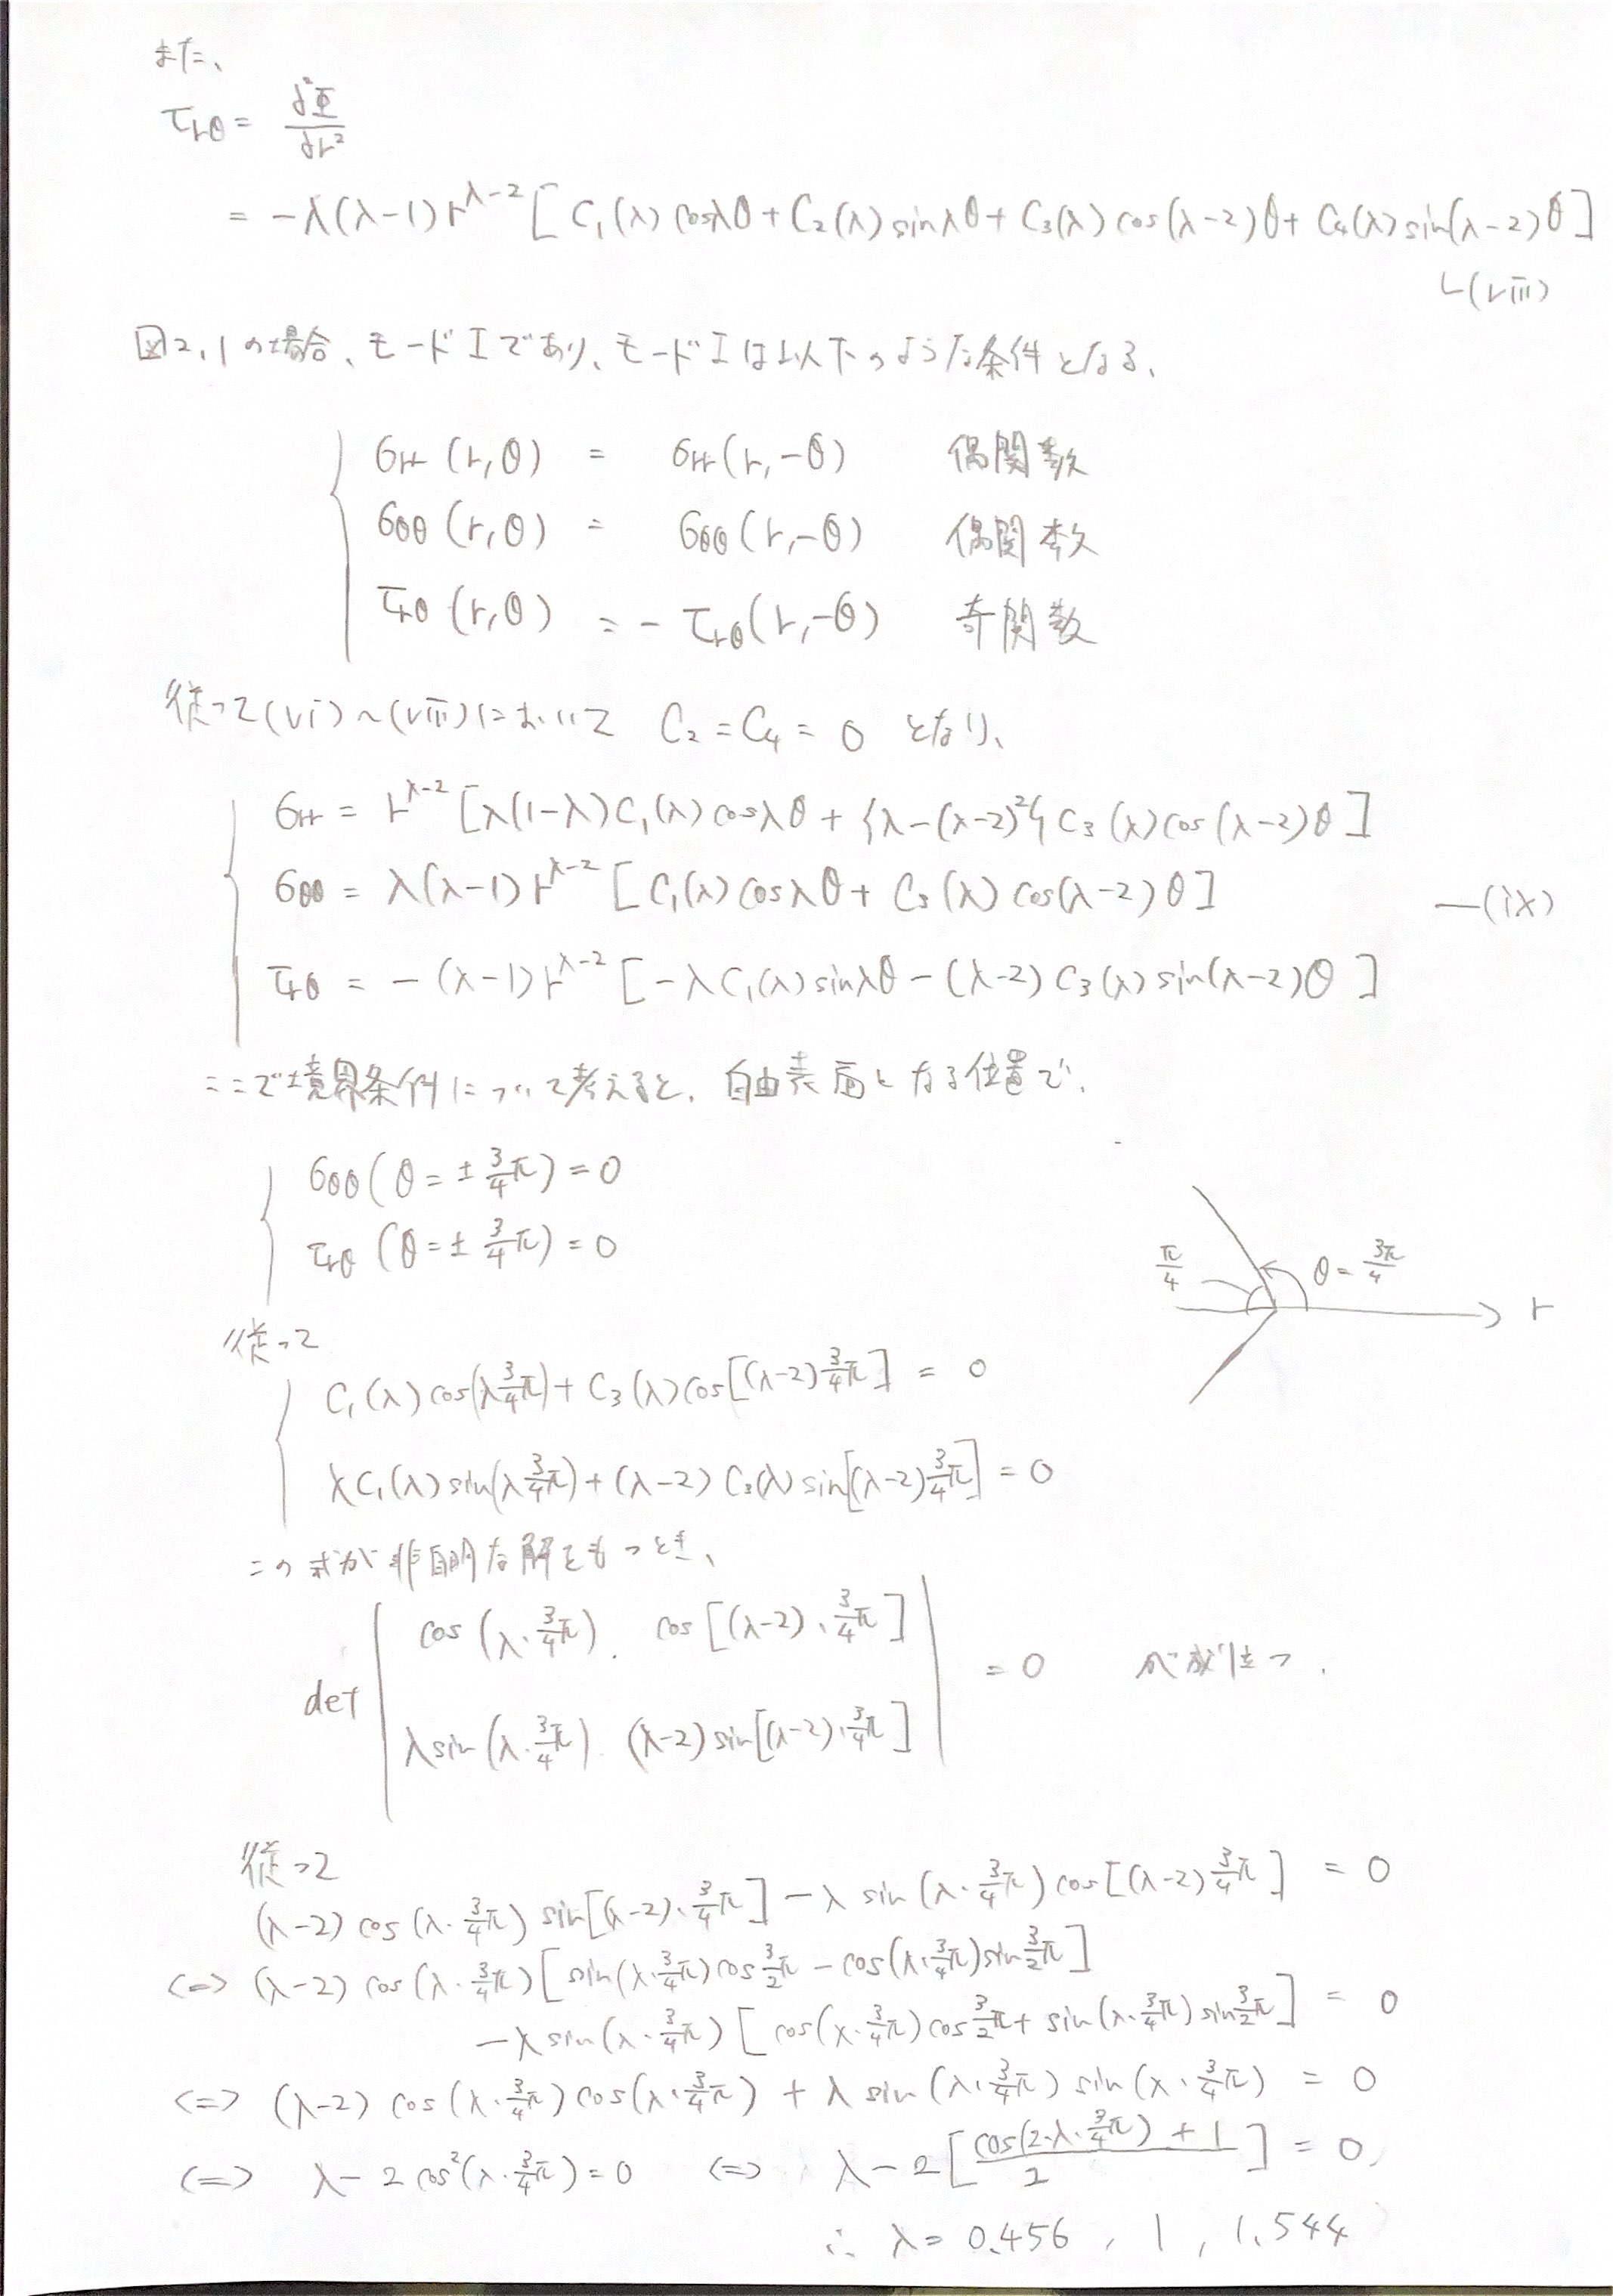 また、
τrθ = ∂²Φ/∂r²
= -λ(λ-1) r^(λ-2) [ C₁(λ) cosλθ + C₂(λ) sinλθ + C₃(λ) cos(λ-2)θ + C₄(λ) sin(λ-2)θ ]
└(viii)
図2.1の場合、モードIであり、モードIは以下のような条件となる、
σrr (r,θ) = σrr (r,-θ) 偶関数
σθθ (r,θ) = σθθ (r,-θ) 偶関数
τrθ (r,θ) = - τrθ (r,-θ) 奇関数
従って(vi)~(viii)において C₂ = C₄ = 0 となり、
σrr = r^(λ-2) [λ(1-λ) C₁(λ) cosλθ + {λ-(λ-2)²} C₃(λ) cos(λ-2)θ ]
σθθ = λ(λ-1) r^(λ-2) [ C₁(λ) cosλθ + C₃(λ) cos(λ-2)θ ] —(ix)
τrθ = -(λ-1) r^(λ-2) [ -λ C₁(λ) sinλθ - (λ-2) C₃(λ) sin(λ-2)θ ]
ここで境界条件について考えると、自由表面となる位置で、
σθθ (θ = ± 3/4 π) = 0
τrθ (θ = ± 3/4 π) = 0
π/4 θ = 3π/4 r
従って
C₁(λ) cos(λ 3/4 π) + C₃(λ) cos[(λ-2) 3/4 π] = 0
λC₁(λ) sin(λ 3/4 π) + (λ-2) C₃(λ) sin[(λ-2) 3/4 π] = 0
この式が非自明な解をもつとき、
det | cos(λ· 3/4 π) . cos[(λ-2)· 3/4 π] |
| λ sin(λ· 3/4 π) . (λ-2) sin[(λ-2)· 3/4 π] | = 0 が成立つ.
従って
(λ-2) cos(λ· 3/4 π) sin[(λ-2)· 3/4 π] - λ sin(λ· 3/4 π) cos[(λ-2) 3/4 π] = 0
⇔ (λ-2) cos(λ· 3/4 π) [ sin(λ· 3/4 π) cos 3/2 π - cos(λ· 3/4 π) sin 3/2 π ]
-λ sin(λ· 3/4 π) [ cos(λ· 3/4 π) cos 3/2 π + sin(λ· 3/4 π) sin 3/2 π ] = 0
⇔ (λ-2) cos(λ· 3/4 π) cos(λ· 3/4 π) + λ sin(λ· 3/4 π) sin(λ· 3/4 π) = 0
⇔ λ - 2 cos²(λ· 3/4 π) = 0 ⇔ λ - 2 [ (cos(2·λ· 3/4 π) + 1)/2 ] = 0,
∴ λ = 0.456 , 1 , 1.544